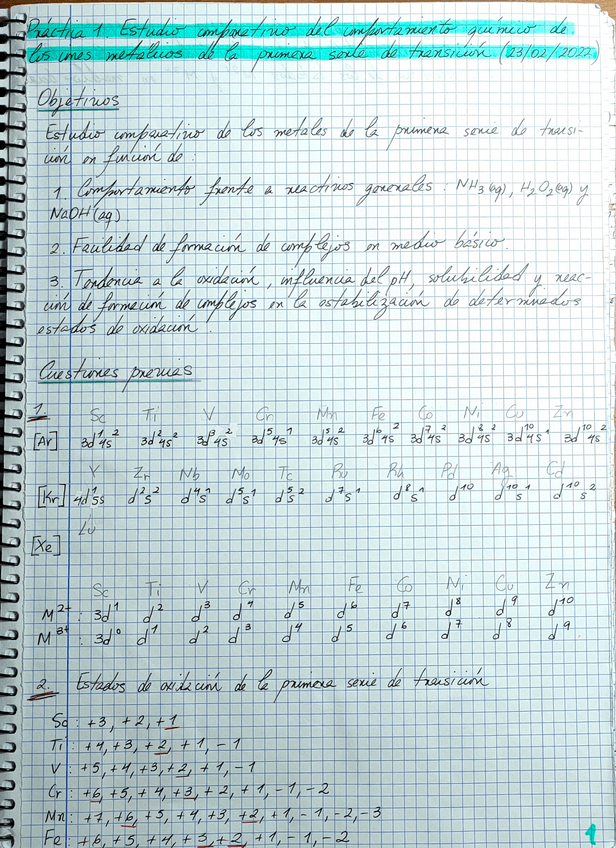 Práctica 1. Estudio comparativo del comportamiento químico de
los iones metálicos de la primera serie de transición (23/02/2022)
Objetivos
Estudio comparativo de los metales de la primera serie de transi-
ción en función de:
1. Comportamiento frente a reactivos generales: NH₃(aq), H₂O₂(aq) y
NaOH(aq).
2. Facilidad de formación de complejos en medio básico.
3. Tendencia a la oxidación, influencia del pH, solubilidad y reac-
ción de formación de complejos en la estabilización de determinados
estados de oxidación.
Cuestiones previas
1. Sc Ti V Cr Mn Fe Co Ni Cu Zn
[Ar] 3d¹4s² 3d²4s² 3d³4s² 3d⁵4s¹ 3d⁵4s² 3d⁶4s² 3d⁷4s² 3d⁸4s² 3d¹⁰4s¹ 3d¹⁰4s²
Y Zr Nb Mo Tc Ru Rh Pd Ag Cd
[Kr] 4d¹5s d²s² d⁴s¹ d⁵s¹ d⁵s² d⁷s¹ d⁸s¹ d¹⁰ d¹⁰s¹ d¹⁰s²
Lu
[Xe]
Sc Ti V Cr Mn Fe Co Ni Cu Zn
M²⁺: 3d¹ d² d³ d⁴ d⁵ d⁶ d⁷ d⁸ d⁹ d¹⁰
M³⁺: 3d⁰ d¹ d² d³ d⁴ d⁵ d⁶ d⁷ d⁸ d⁹
2. Estados de oxidación de la primera serie de transición
Sc: +3, +2, +1
Ti: +4, +3, +2, +1, -1
V: +5, +4, +3, +2, +1, -1
Cr: +6, +5, +4, +3, +2, +1, -1, -2
Mn: +7, +6, +5, +4, +3, +2, +1, -1, -2, -3
Fe: +6, +5, +4, +3, +2, +1, -1, -2
1